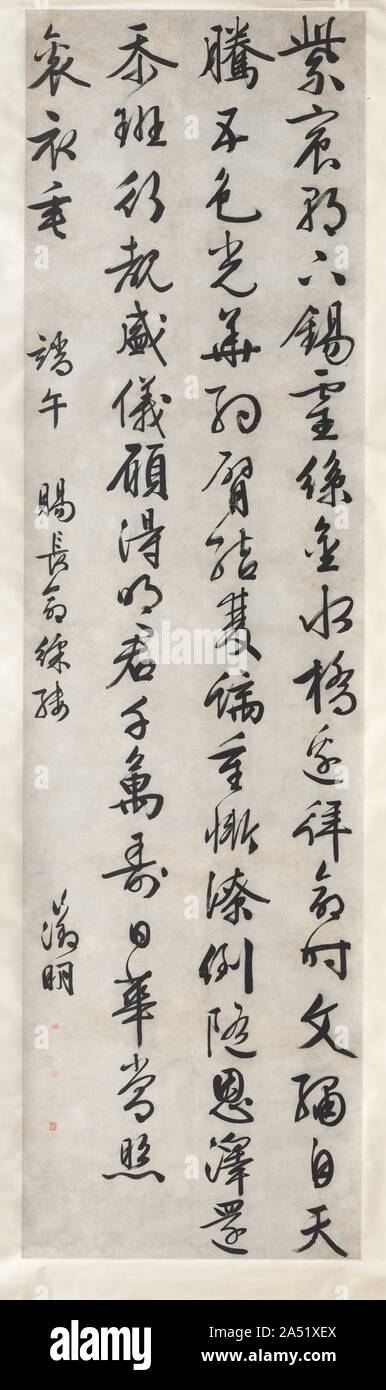 紫宸朝下錫靈絲金水橋邊拜命时文繡自天
騰五色光華約臂結雙螭重慚潦倒隨恩澤還
忝班行覩盛儀願得明君千萬壽日華常照
袞衣垂 端午 賜長命綵縷 徵明
alamy
Image ID: 2A51XEX
www.alamy.com